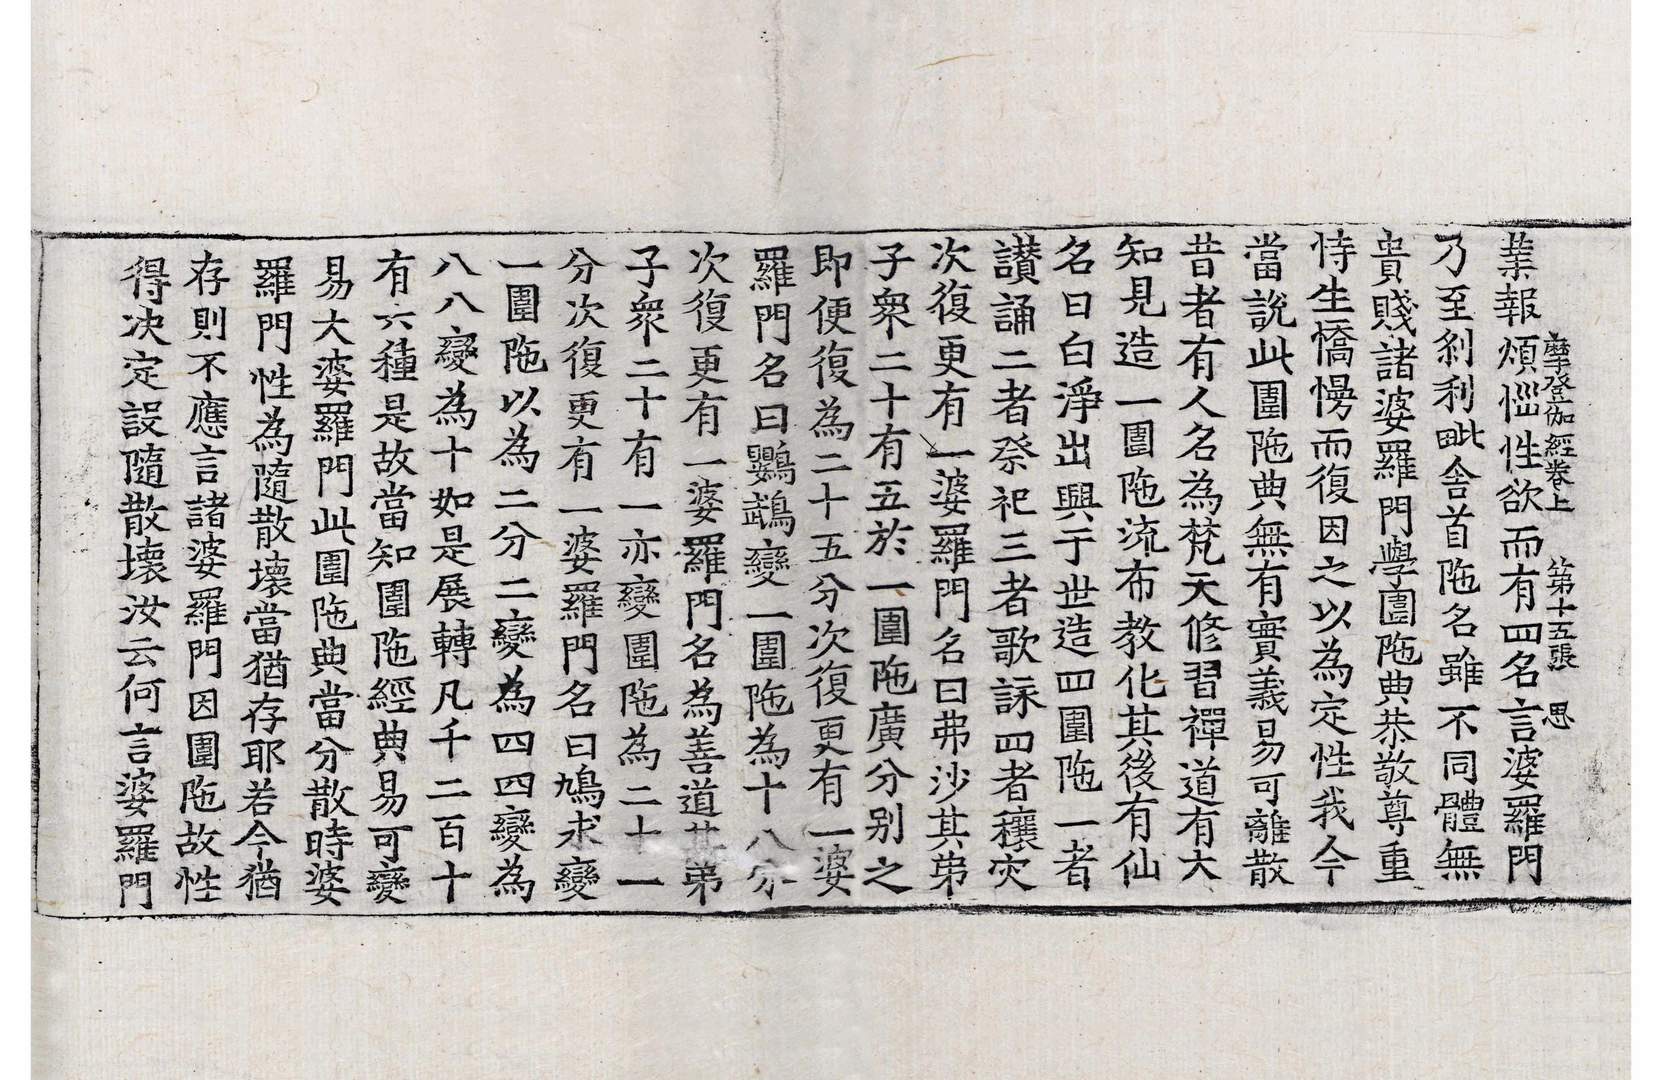 摩登伽經卷上　第十五張　思
業報煩惱性欲而有四名言婆羅門
乃至剎利毗舍首陁名雖不同體無
貴賤諸婆羅門學圍陁典恭敬尊重
恃生憍慢而復因之以為定性我今
當說此圍陁典無有實義易可離散
昔者有人名為梵天修習禪道有大
知見造一圍陁流布教化其後有仙
名曰白淨出興于世造四圍陁一者
讃誦二者祭祀三者歌詠四者穰灾
次復更有一婆羅門名曰弗沙其弟
子衆二十有五於一圍陁廣分別之
即便復為二十五分次復更有一婆
羅門名曰鸚鵡變一圍陁為十八分
次復更有一婆羅門名為善道其弟
子衆二十有一亦變圍陁為二十一
分次復更有一婆羅門名曰鳩求變
一圍陁以為二分二變為四四變為
八八變為十如是展轉凡千二百十
有六種是故當知圍陁經典易可變
易大婆羅門此圍陁典當分散時婆
羅門性為隨散壞當猶存耶若今猶
存則不應言諸婆羅門因圍陁故性
得决定設隨散壞汝云何言婆羅門